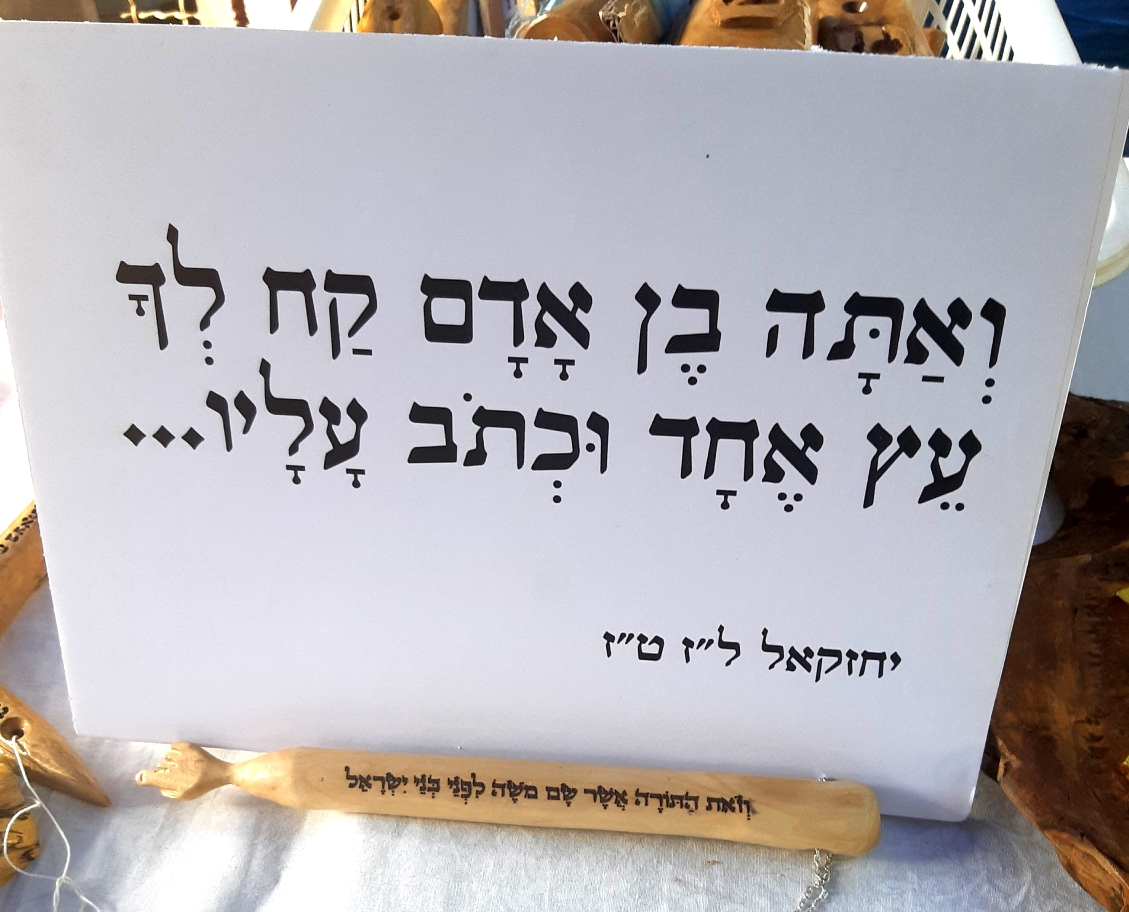 וְאַתָּה בֶן אָדָם קַח לְךָ
עֵץ אֶחָד וּכְתֹב עָלָיו...
יחזקאל ל״ז ט״ז
וְזֹאת הַתּוֹרָה אֲשֶׁר שָׂם מֹשֶׁה לִפְנֵי בְּנֵי יִשְׂרָאֵל